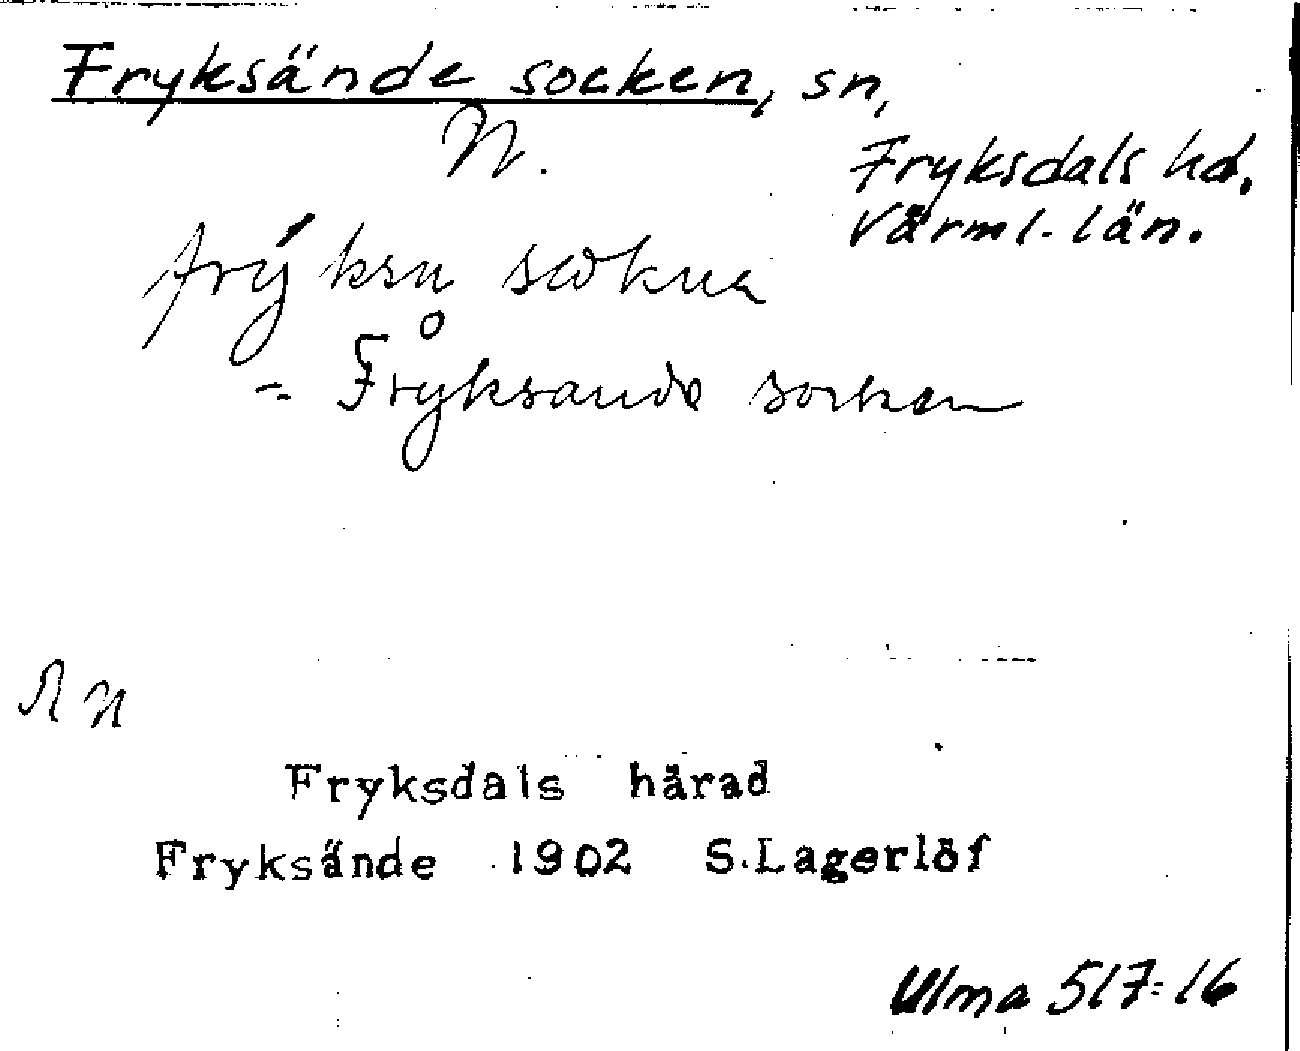 Fryksände socken, sn,
N.
Fryksdals hd.
Värml. län.
frýksn sωkna
= Fryksande socken
Fryksdals härad
Fryksände 1902 S.Lagerlöf
Ulma 517:16